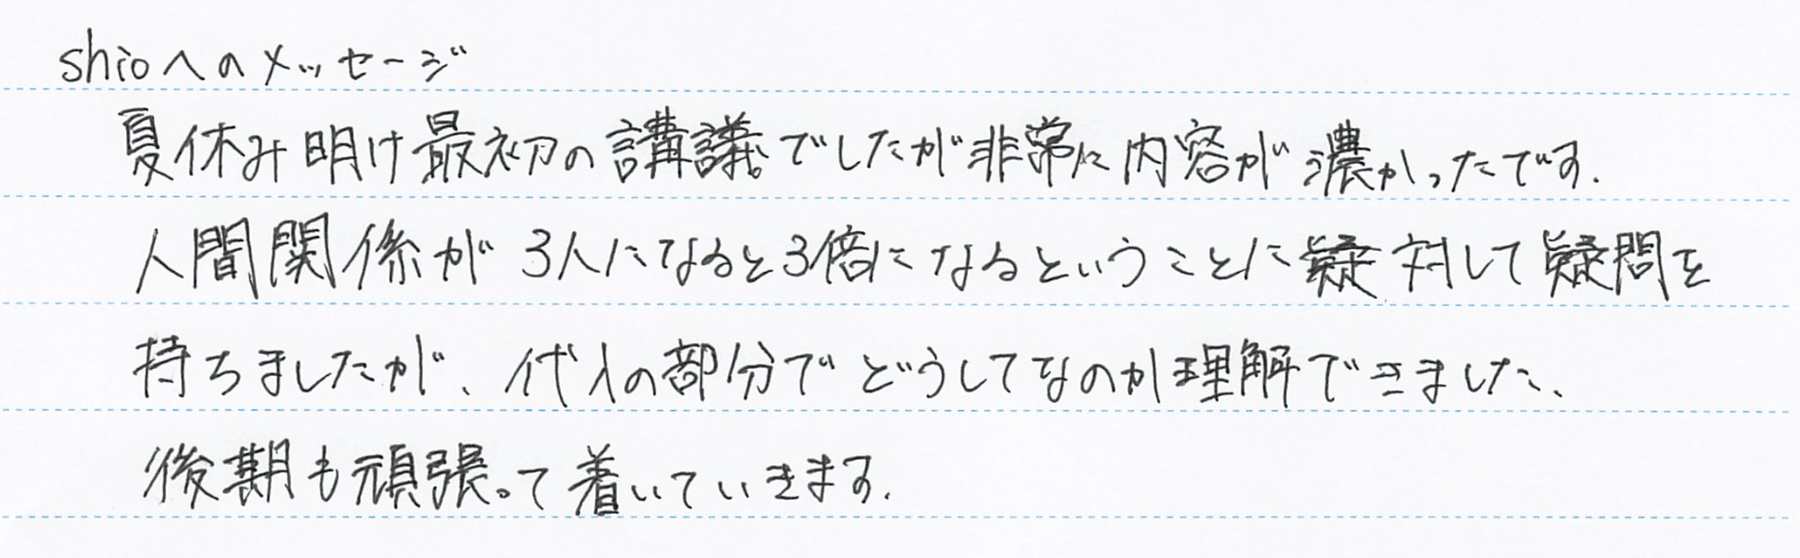 shioへのメッセージ
夏休み明け最初の講義でしたが非常に内容が濃かったです.
人間関係が3人になると3倍になるということに対して疑問を
持ちましたが、代入の部分でどうしてなのか理解できました、
後期も頑張って着いていきます.